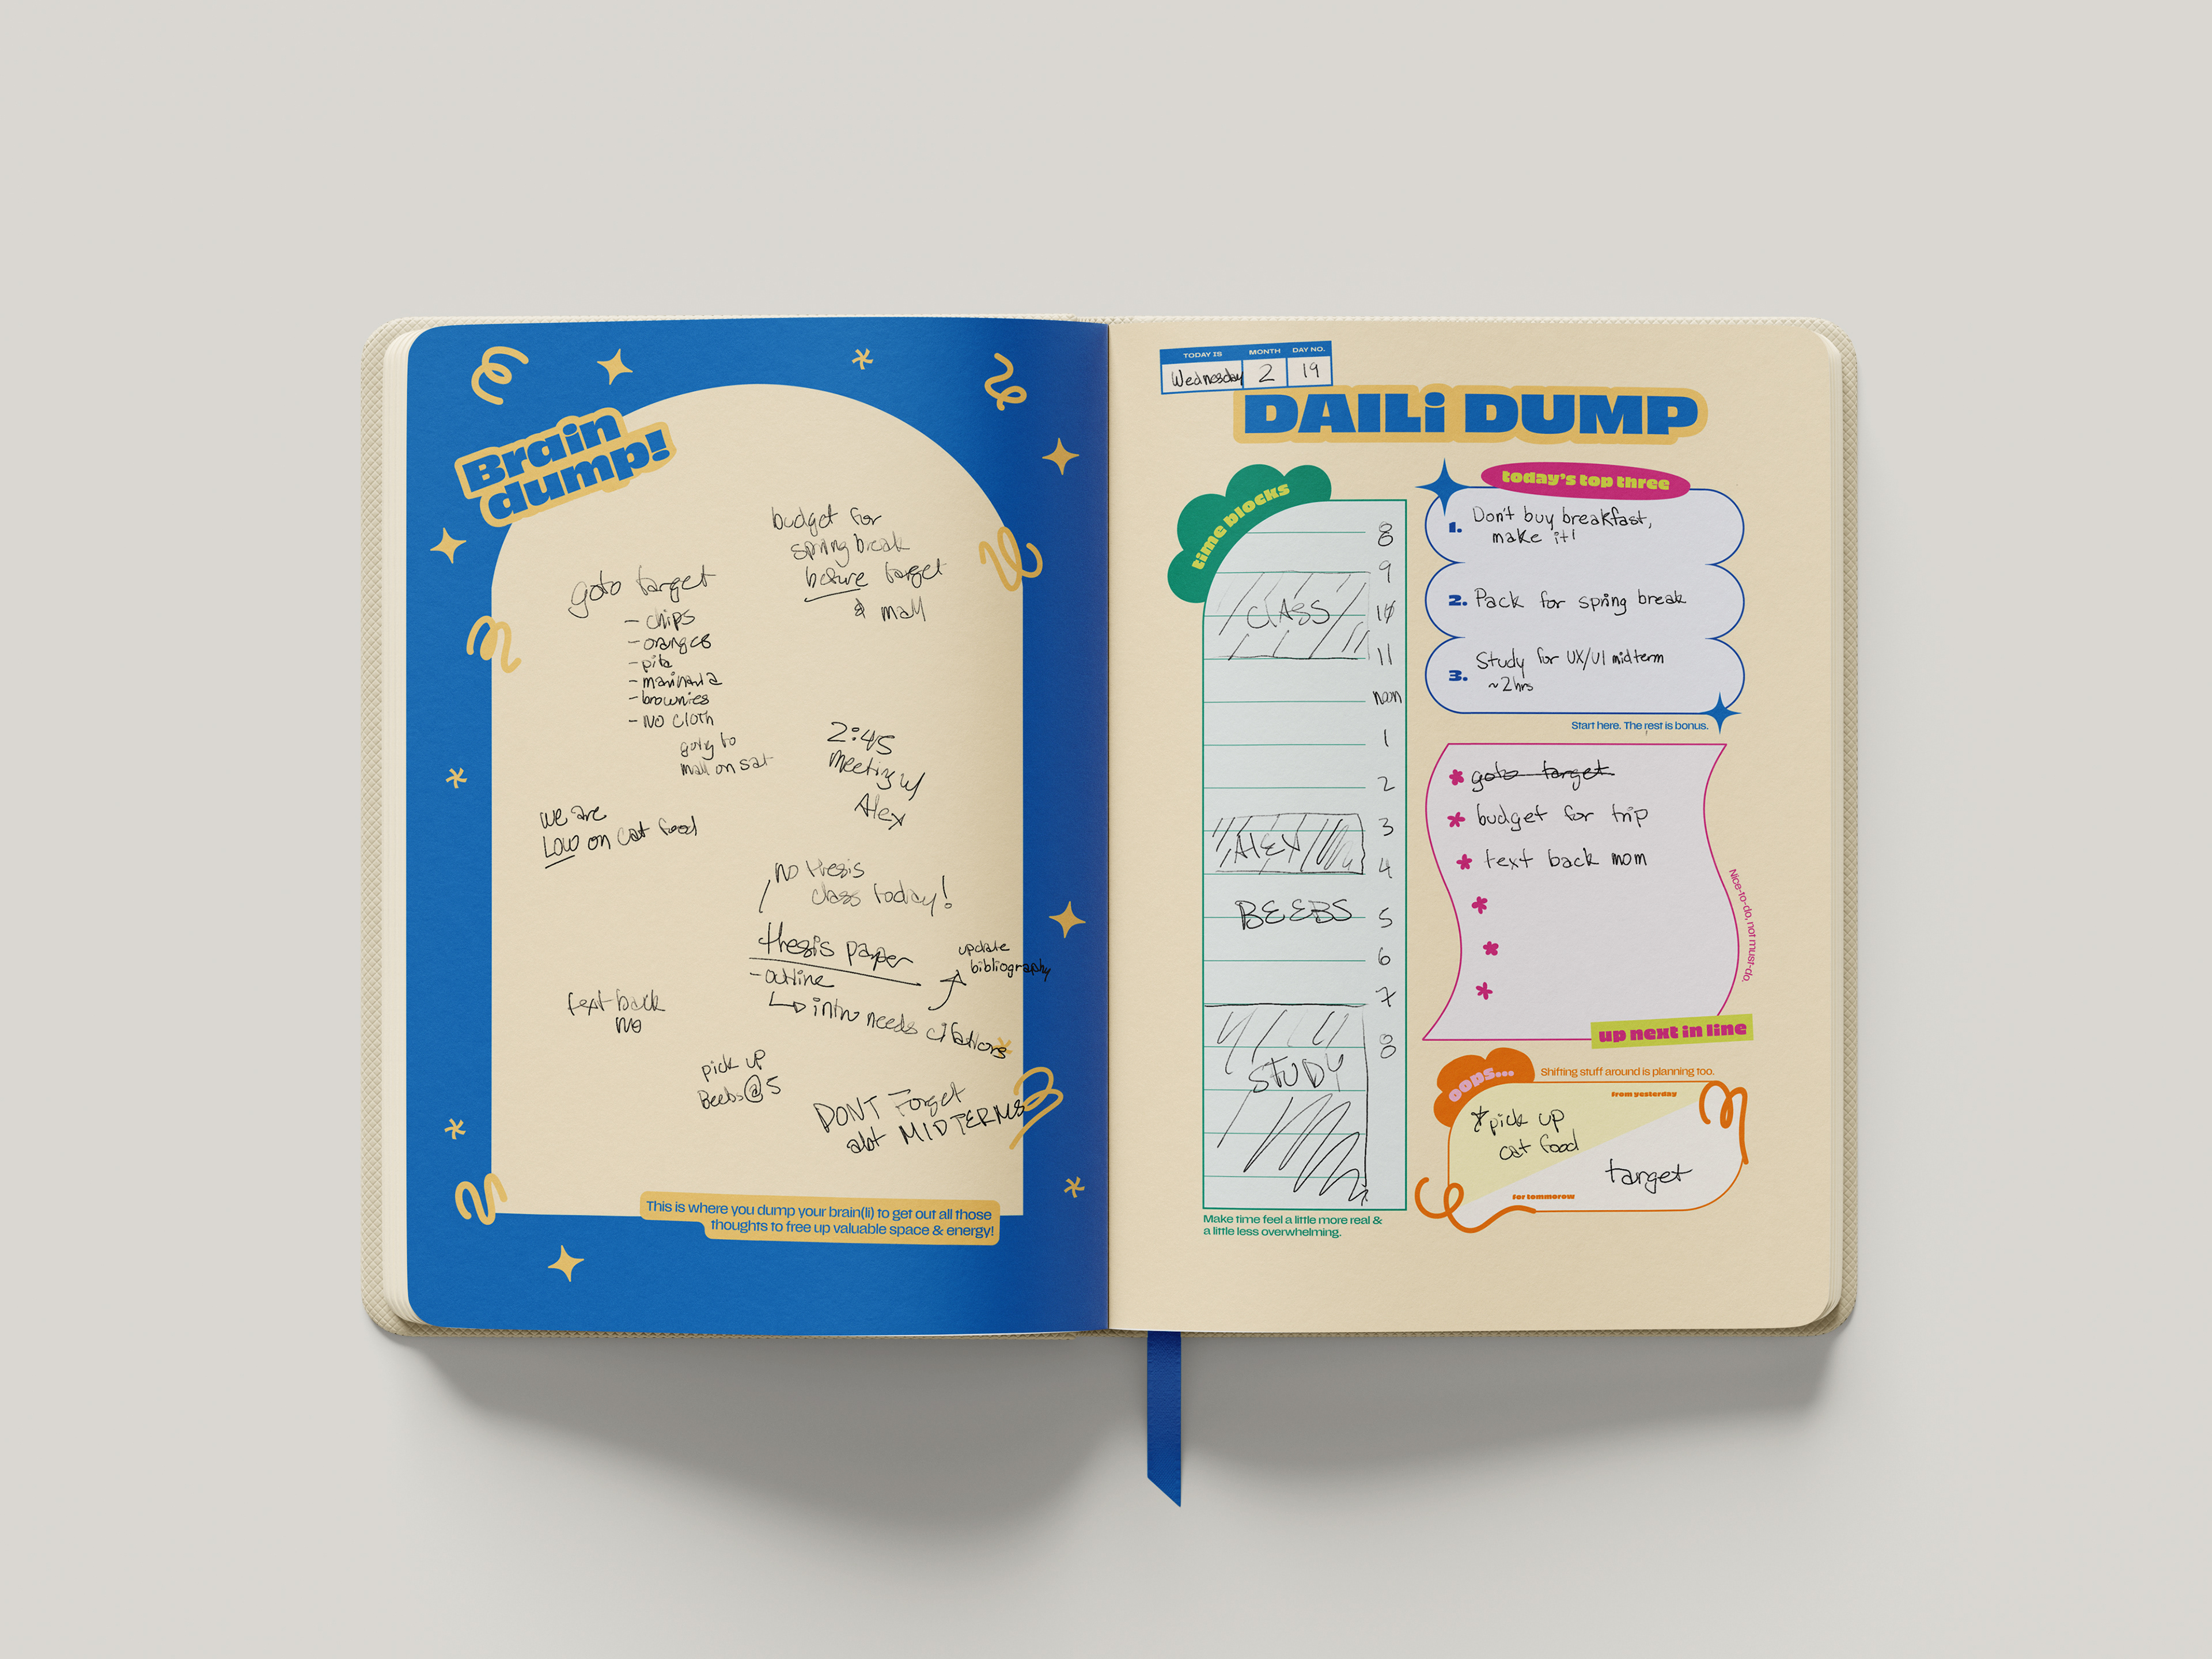 Brain
dump!
budget for
spring break
before target
& mall
goto target
- chips
- oranges
- pita
- marinara
- brownies
- NO CLOTH
going to
mall on sat
2:45
meeting w/
Alex
we are
LOW on cat food
no thesis
class today!
thesis paper
- outline
intro needs citations
update
bibliography
text back
mo
pick up
Beebs @ 5
DONT Forget
abt MIDTERMS
This is where you dump your brain(li) to get out all those
thoughts to free up valuable space & energy!
TODAY IS MONTH DAY NO.
Wednesday 2 19
DAILi DUMP
time blocks
8
9
CLASS
10
11
noon
1
2
3
ALEX
4
BEEBS 5
6
7
8
STUDY
Make time feel a little more real &
a little less overwhelming.
today's top three
1. Don't buy breakfast,
make it!
2. Pack for spring break
3. Study for UX/UI midterm
~2hrs
Start here. The rest is bonus.
goto target
budget for trip
text back mom
Nice-to-do, not must-do.
up next in line
oops...
Shifting stuff around is planning too.
from yesterday
*pick up
cat food
target
for tommorow